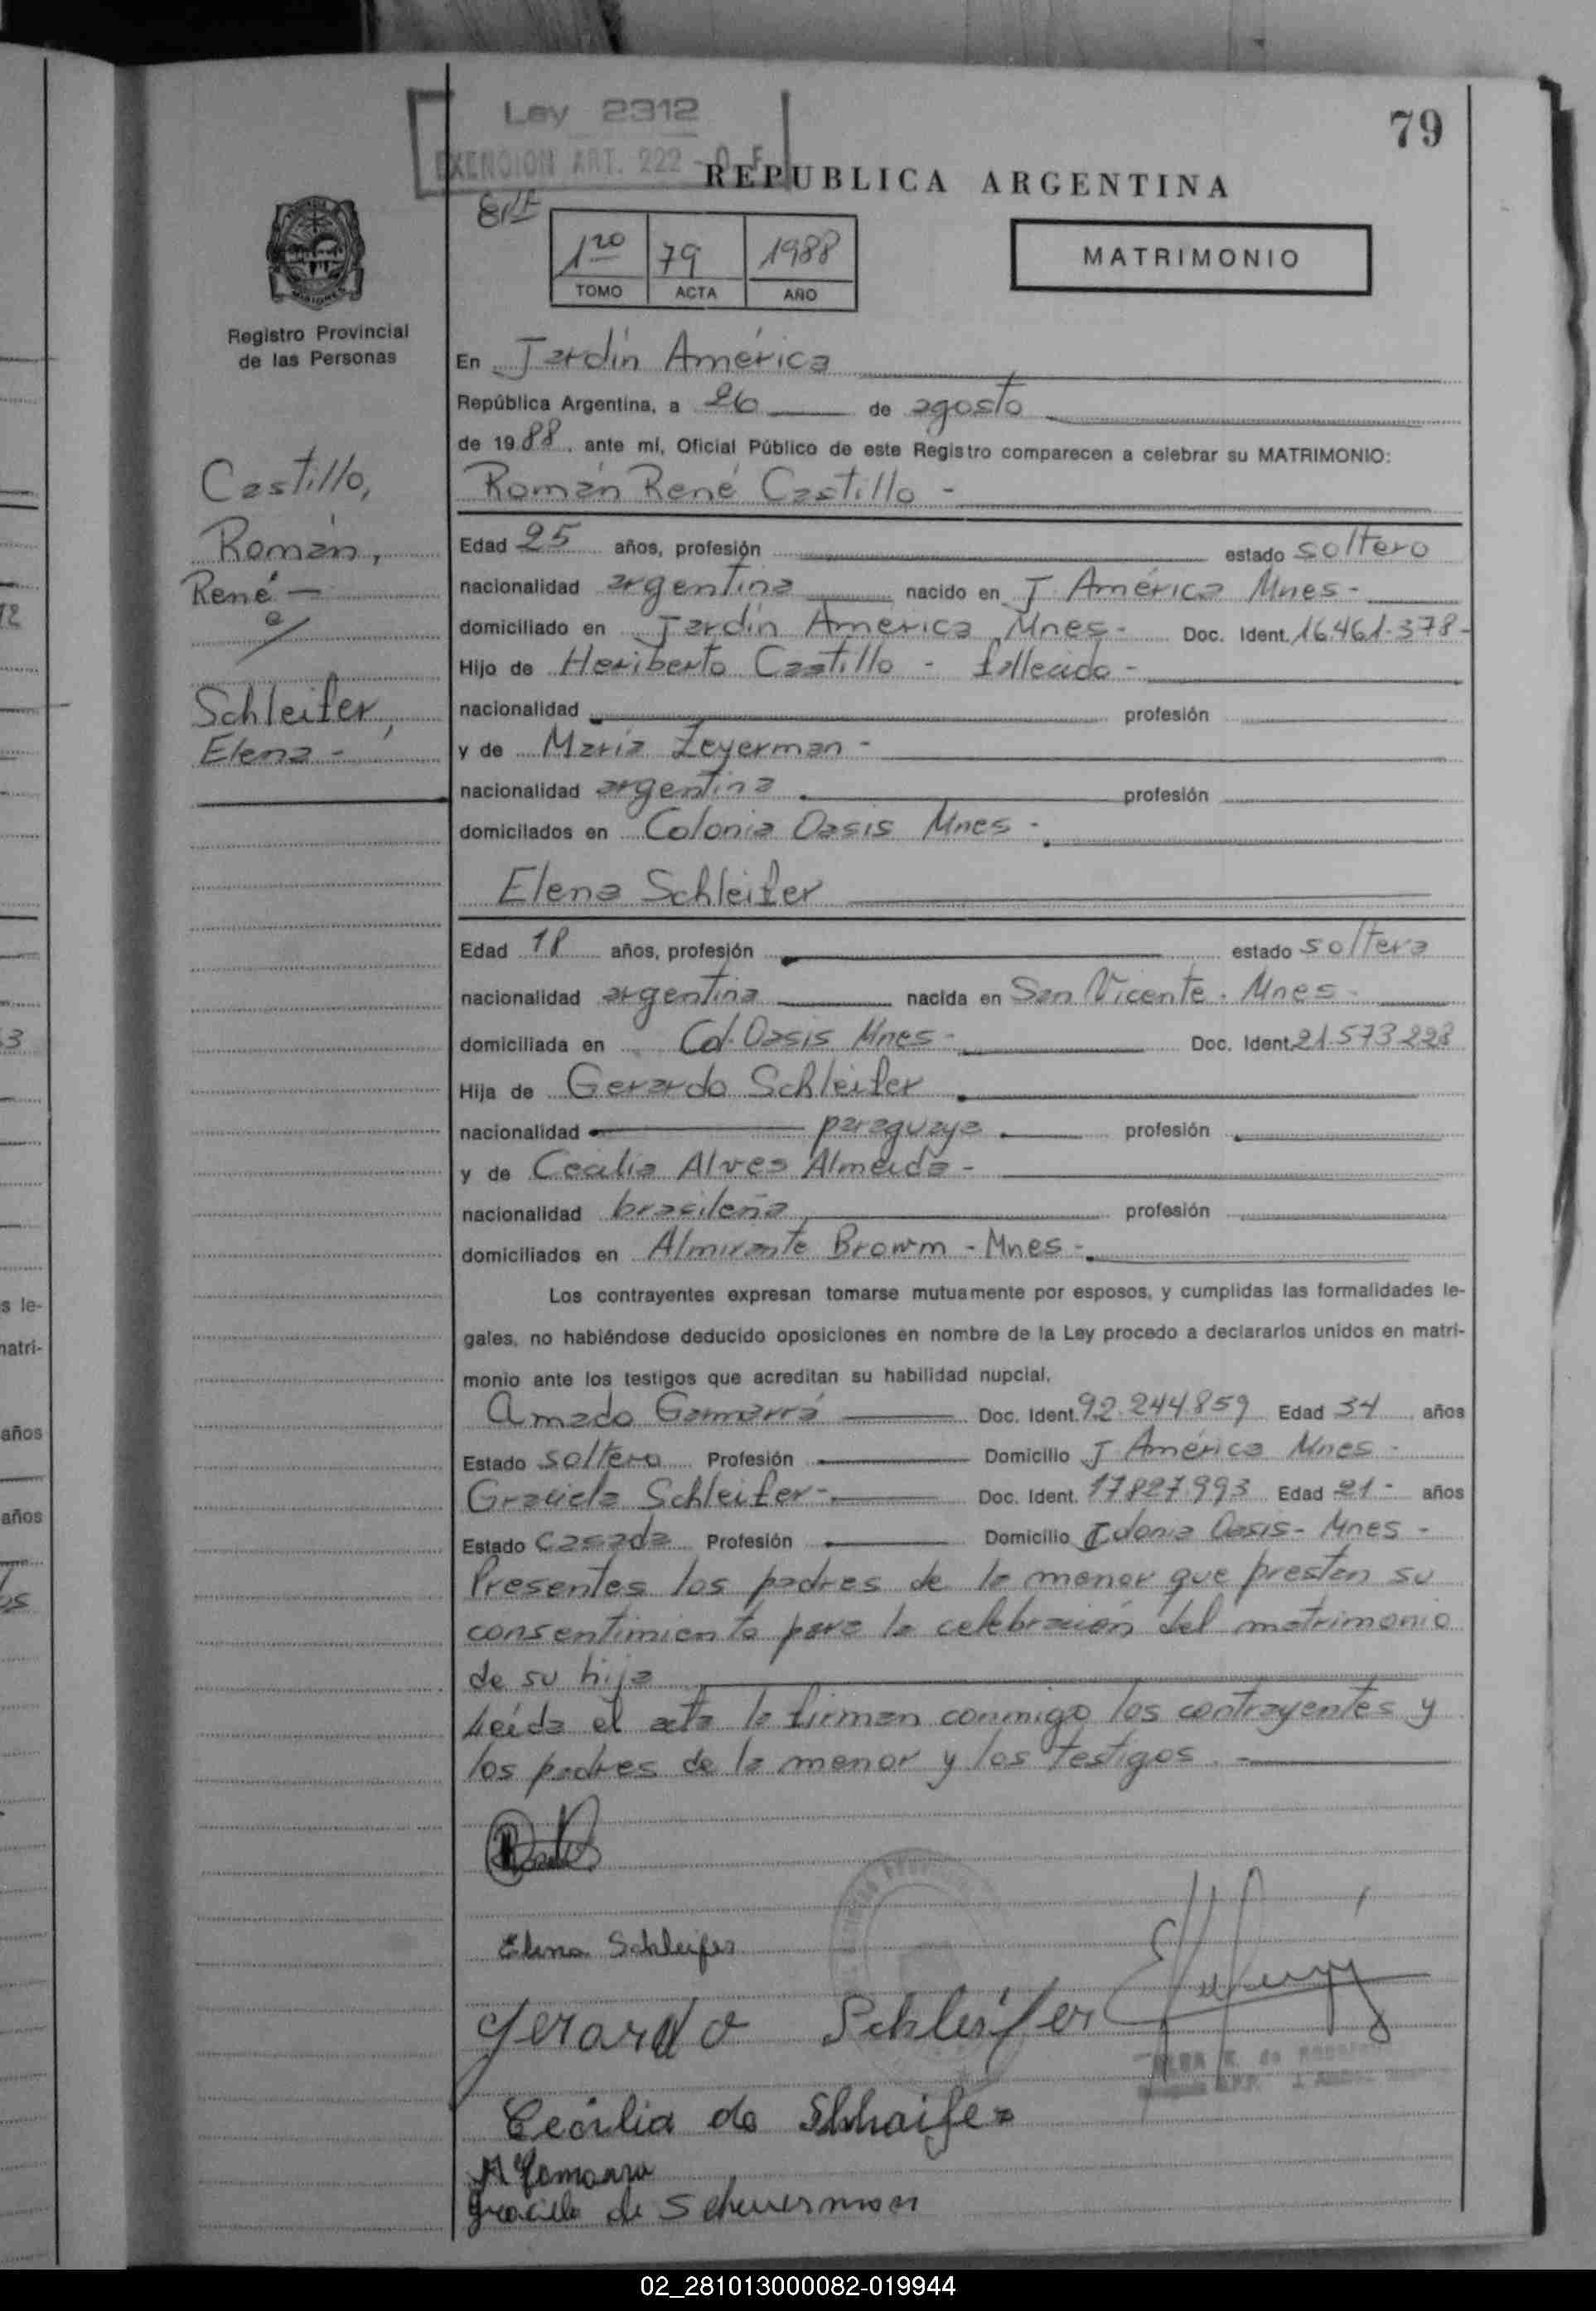 Ley 2312
EXENCION ART. 222 - O. F.
79
REPUBLICA ARGENTINA
1ro 79 1988
TOMO ACTA AÑO
MATRIMONIO
Registro Provincial
de las Personas
Castillo,
Román,
René -
e/
Schleifer,
Elena -
En Jardín América
República Argentina, a 26 de agosto
de 1988, ante mí, Oficial Público de este Registro comparecen a celebrar su MATRIMONIO:
Román René Castillo -
Edad 25 años, profesión estado soltero
nacionalidad argentina nacido en J América Mnes -
domiciliado en Jardín América Mnes - Doc. Ident. 16.461.378 -
Hijo de Heriberto Castillo - fallecido -
nacionalidad profesión
y de María Zeyerman -
nacionalidad argentina profesión
domicilados en Colonia Oasis Mnes -
Elena Schleifer
Edad 18 años, profesión estado soltera
nacionalidad argentina nacida en San Vicente. Mnes -
domiciliada en Col. Oasis Mnes - Doc. Ident. 21.573.228
Hija de Gerardo Schleifer
nacionalidad paraguaya profesión
y de Cecilia Alves Almeida -
nacionalidad brasileña profesión
domiciliados en Almirante Browm - Mnes -
Los contrayentes expresan tomarse mutuamente por esposos, y cumplidas las formalidades le-
gales, no habiéndose deducido oposiciones en nombre de la Ley procedo a declararlos unidos en matri-
monio ante los testigos que acreditan su habilidad nupcial,
Amado Gamarra Doc. Ident. 92.244.859 Edad 34 años
Estado soltero Profesión Domicilio J América Mnes -
Graciela Schleifer - Doc. Ident. 17.827.993 Edad 21 - años
Estado casada Profesión Domicilio Colonia Oasis - Mnes -
Presentes los padres de la menor que prestan su
consentimiento para la celebración del matrimonio
de su hija
Leída el acta la firman conmigo los contrayentes y
los padres de la menor y los testigos. -
Elena Schleifer
Gerardo Schleifer
Cecilia de Shhaifer
A Gamarra
Graciela de Scheuerman
s le-
matri-
años
años
02_281013000082-019944